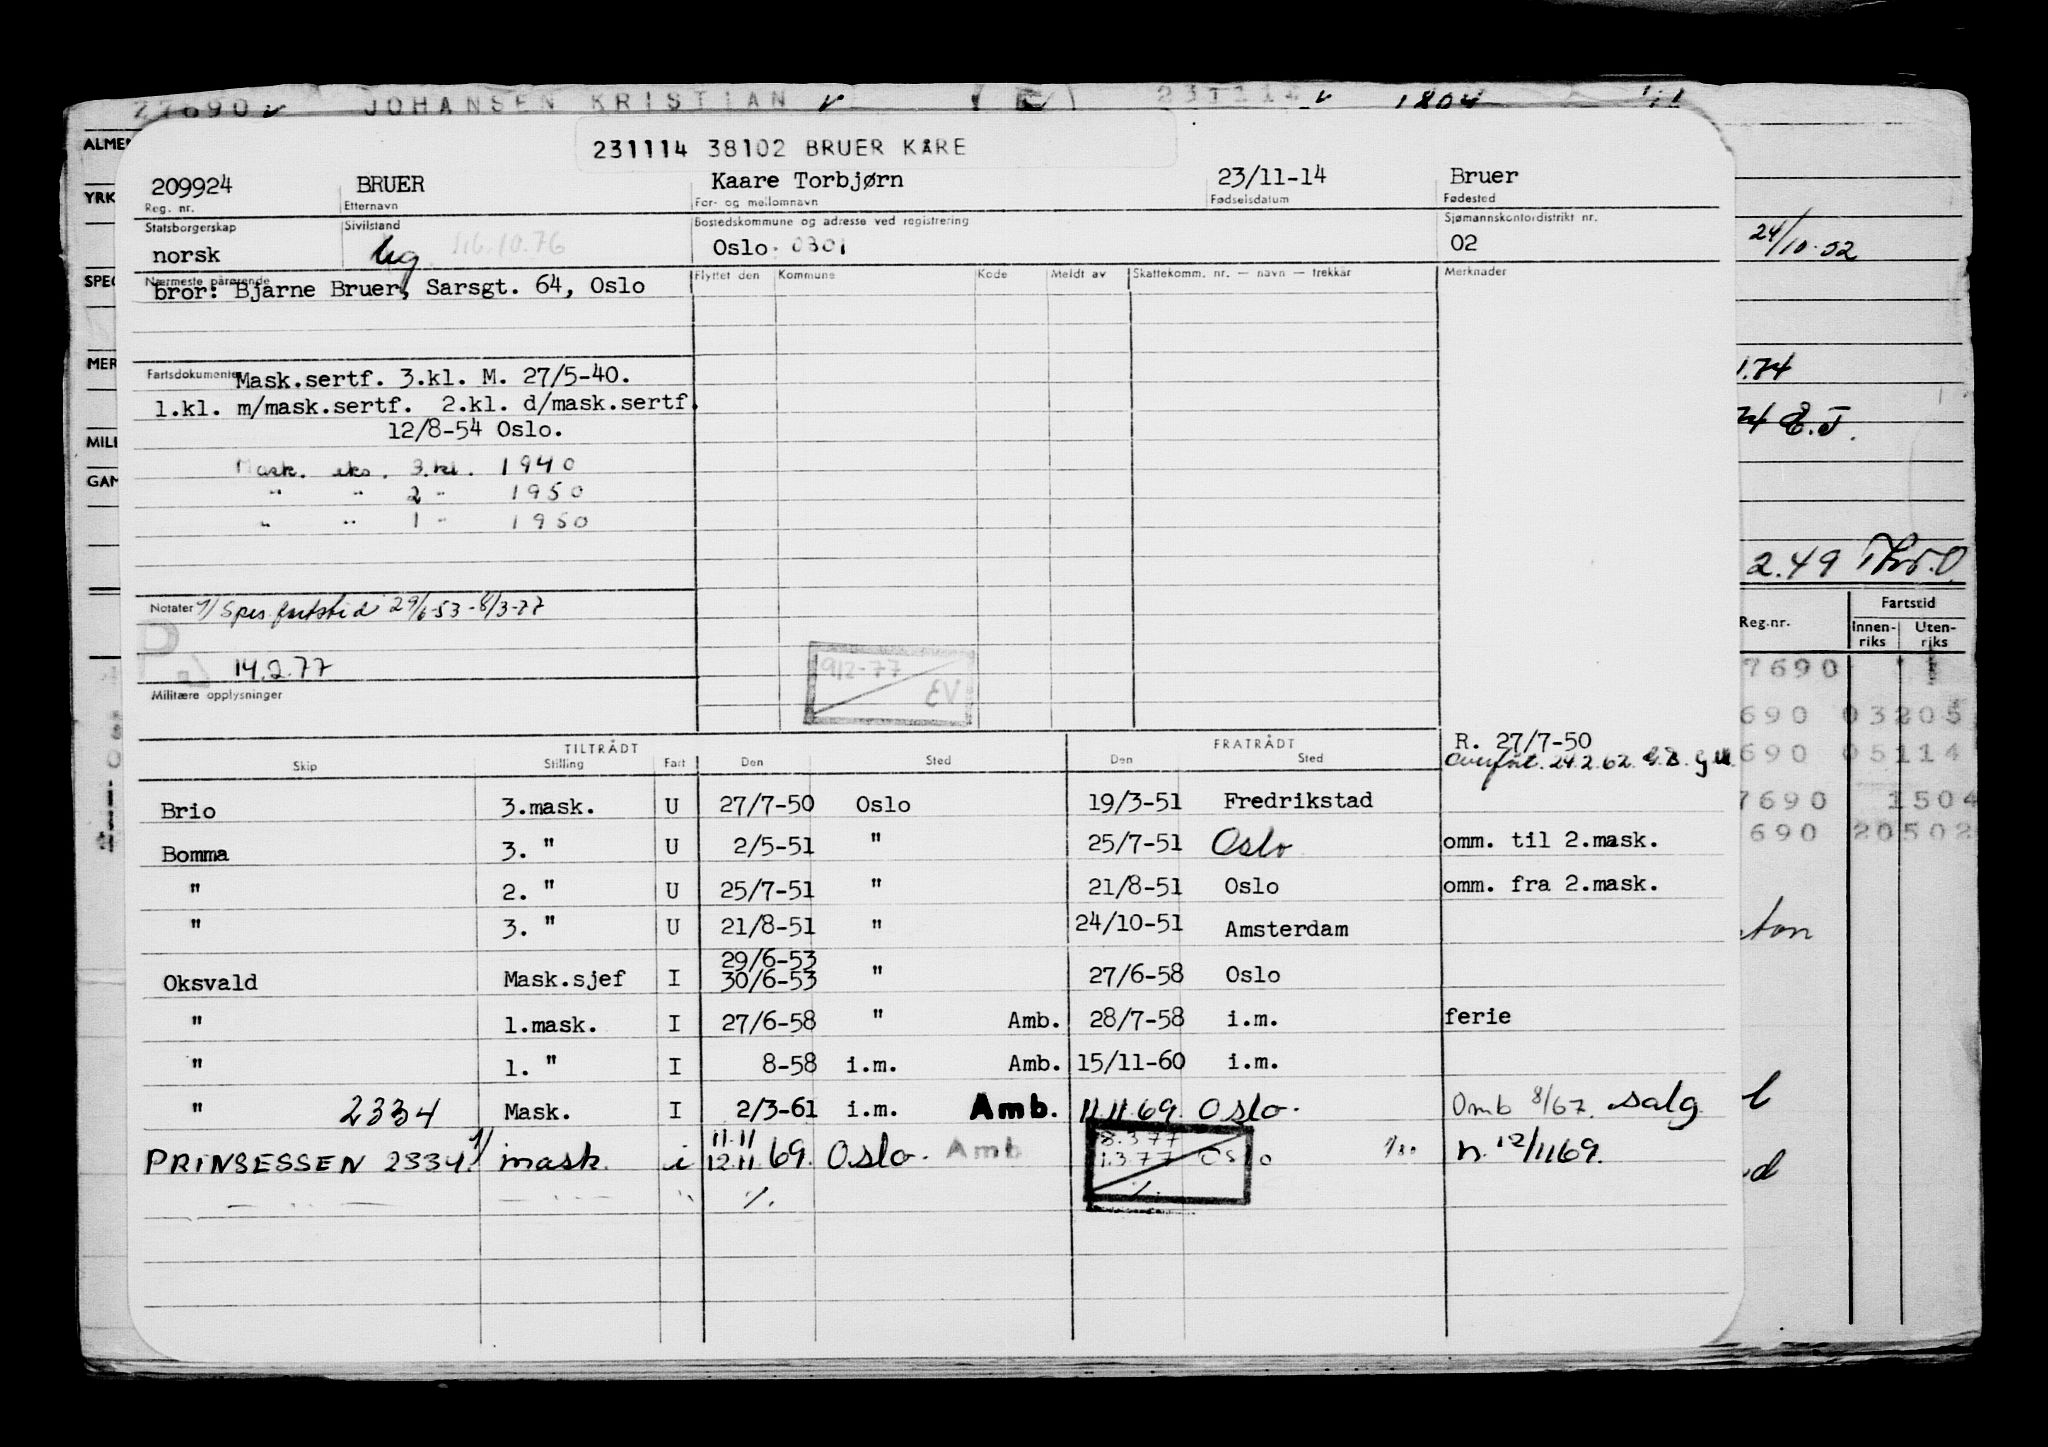 27690 JOHANSEN KRISTIAN (E) 231114 1804
231114 38102 BRUER KÅRE
209924 BRUER Kaare Torbjørn 23/11-14 Bruer
Reg. nr. Etternavn For- og mellomnavn Fødselsdatum Fødested
Statsborgerskap Sivilstand Bostedskommune og adresse ved registrering Sjømannskontordistrikt nr.
norsk ug 16.10.76 Oslo 0301 02
24/10-52
Nærmeste pårørende Flyttet den Kommune Kode Meldt av Skattekomm. nr. — navn — trekkår Merknader
bror: Bjarne Bruer, Sarsgt. 64, Oslo
Fartsdokumenter Mask.sertf. 3.kl. M. 27/5-40.
1.kl. m/mask.sertf. 2.kl. d/mask.sertf.
12/8-54 Oslo.
Mask. eks. 3.kl. 1940
" " 2 " 1950
" " 1 " 1950
Notater 1) Spes fartstid 29/6-53-8/3-77
14.2.77
912-77 EV
Militære opplysninger
ALMEN
YRK
SPEC
MER
MILI
GAM
2.49
Fartstid
Reg.nr. Innen-riks Uten-riks
7690
690 03205
690 05114
7690 1504
690 20502
TILTRÅDT FRATRÅDT R. 27/7-50
Skip Stilling Fart Den Sted Den Sted
Brio 3.mask. U 27/7-50 Oslo 19/3-51 Fredrikstad
Bomma 3. " U 2/5-51 " 25/7-51 Oslo omm. til 2.mask.
" 2. " U 25/7-51 " 21/8-51 Oslo omm. fra 2.mask.
" 3. " U 21/8-51 " 24/10-51 Amsterdam
29/6-53
Oksvald Mask.sjef I 30/6-53 " 27/6-58 Oslo
" 1.mask. I 27/6-58 " Amb. 28/7-58 i.m. ferie
" 1. " I 8-58 i.m. Amb. 15/11-60 i.m.
" 2334 Mask. I 2/3-61 i.m. Amb. 11.11.69. Oslo. Omb 8/67. salg
11.11 8.3.77
PRINSESSEN 2334 1) mask. i 12.11.69. Oslo. Amb 1.3.77 Oslo n. 12/1169.